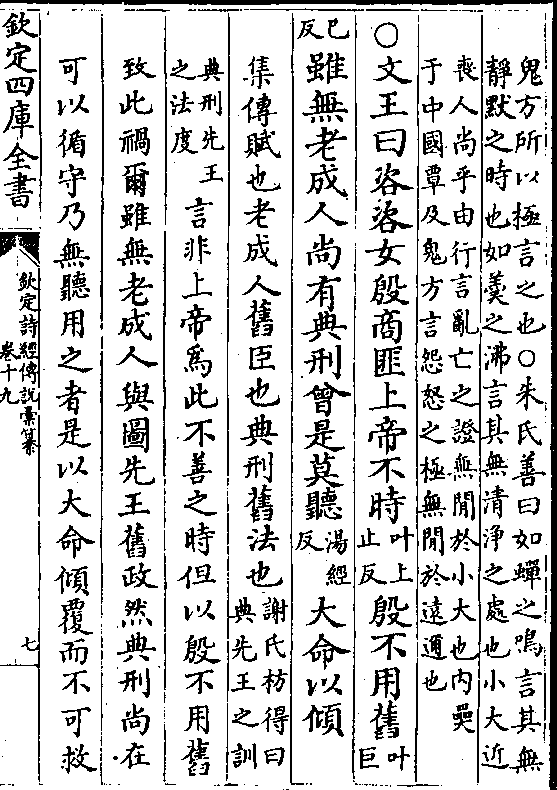 鬼方所以極言之也○朱氏善曰如蟬之鳴言其無
靜默之時也如羹之沸言其無清淨之處也小大近
喪人尚乎由行言亂亡之證無閒於小大也內奰
于中國覃及鬼方言怨怒之極無閒於遠邇也
○文王曰咨咨女殷商匪上帝不時叶上止反殷不用舊叶巨
巳反雖無老成人尚有典刑曾是莫聽湯經反大命以傾
集傳賦也老成人舊臣也典刑舊法也謝氏枋得曰典先王之訓
典刑先王之法度言非上帝爲此不善之時但以殷不用舊
致此禍爾雖無老成人與圖先王舊政然典刑尚在
可以循守乃無聽用之者是以大命傾覆而不可救
欽定四庫全書
欽定詩經傳說彙纂
卷十九
七